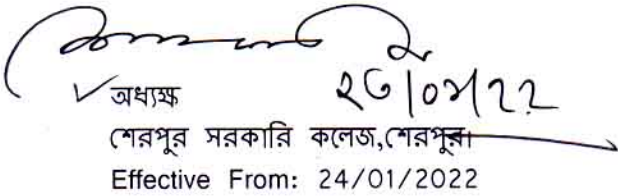 অধ্যক্ষ
শেরপুর সরকারি কলেজ,শেরপুর।
Effective From: 24/01/2022